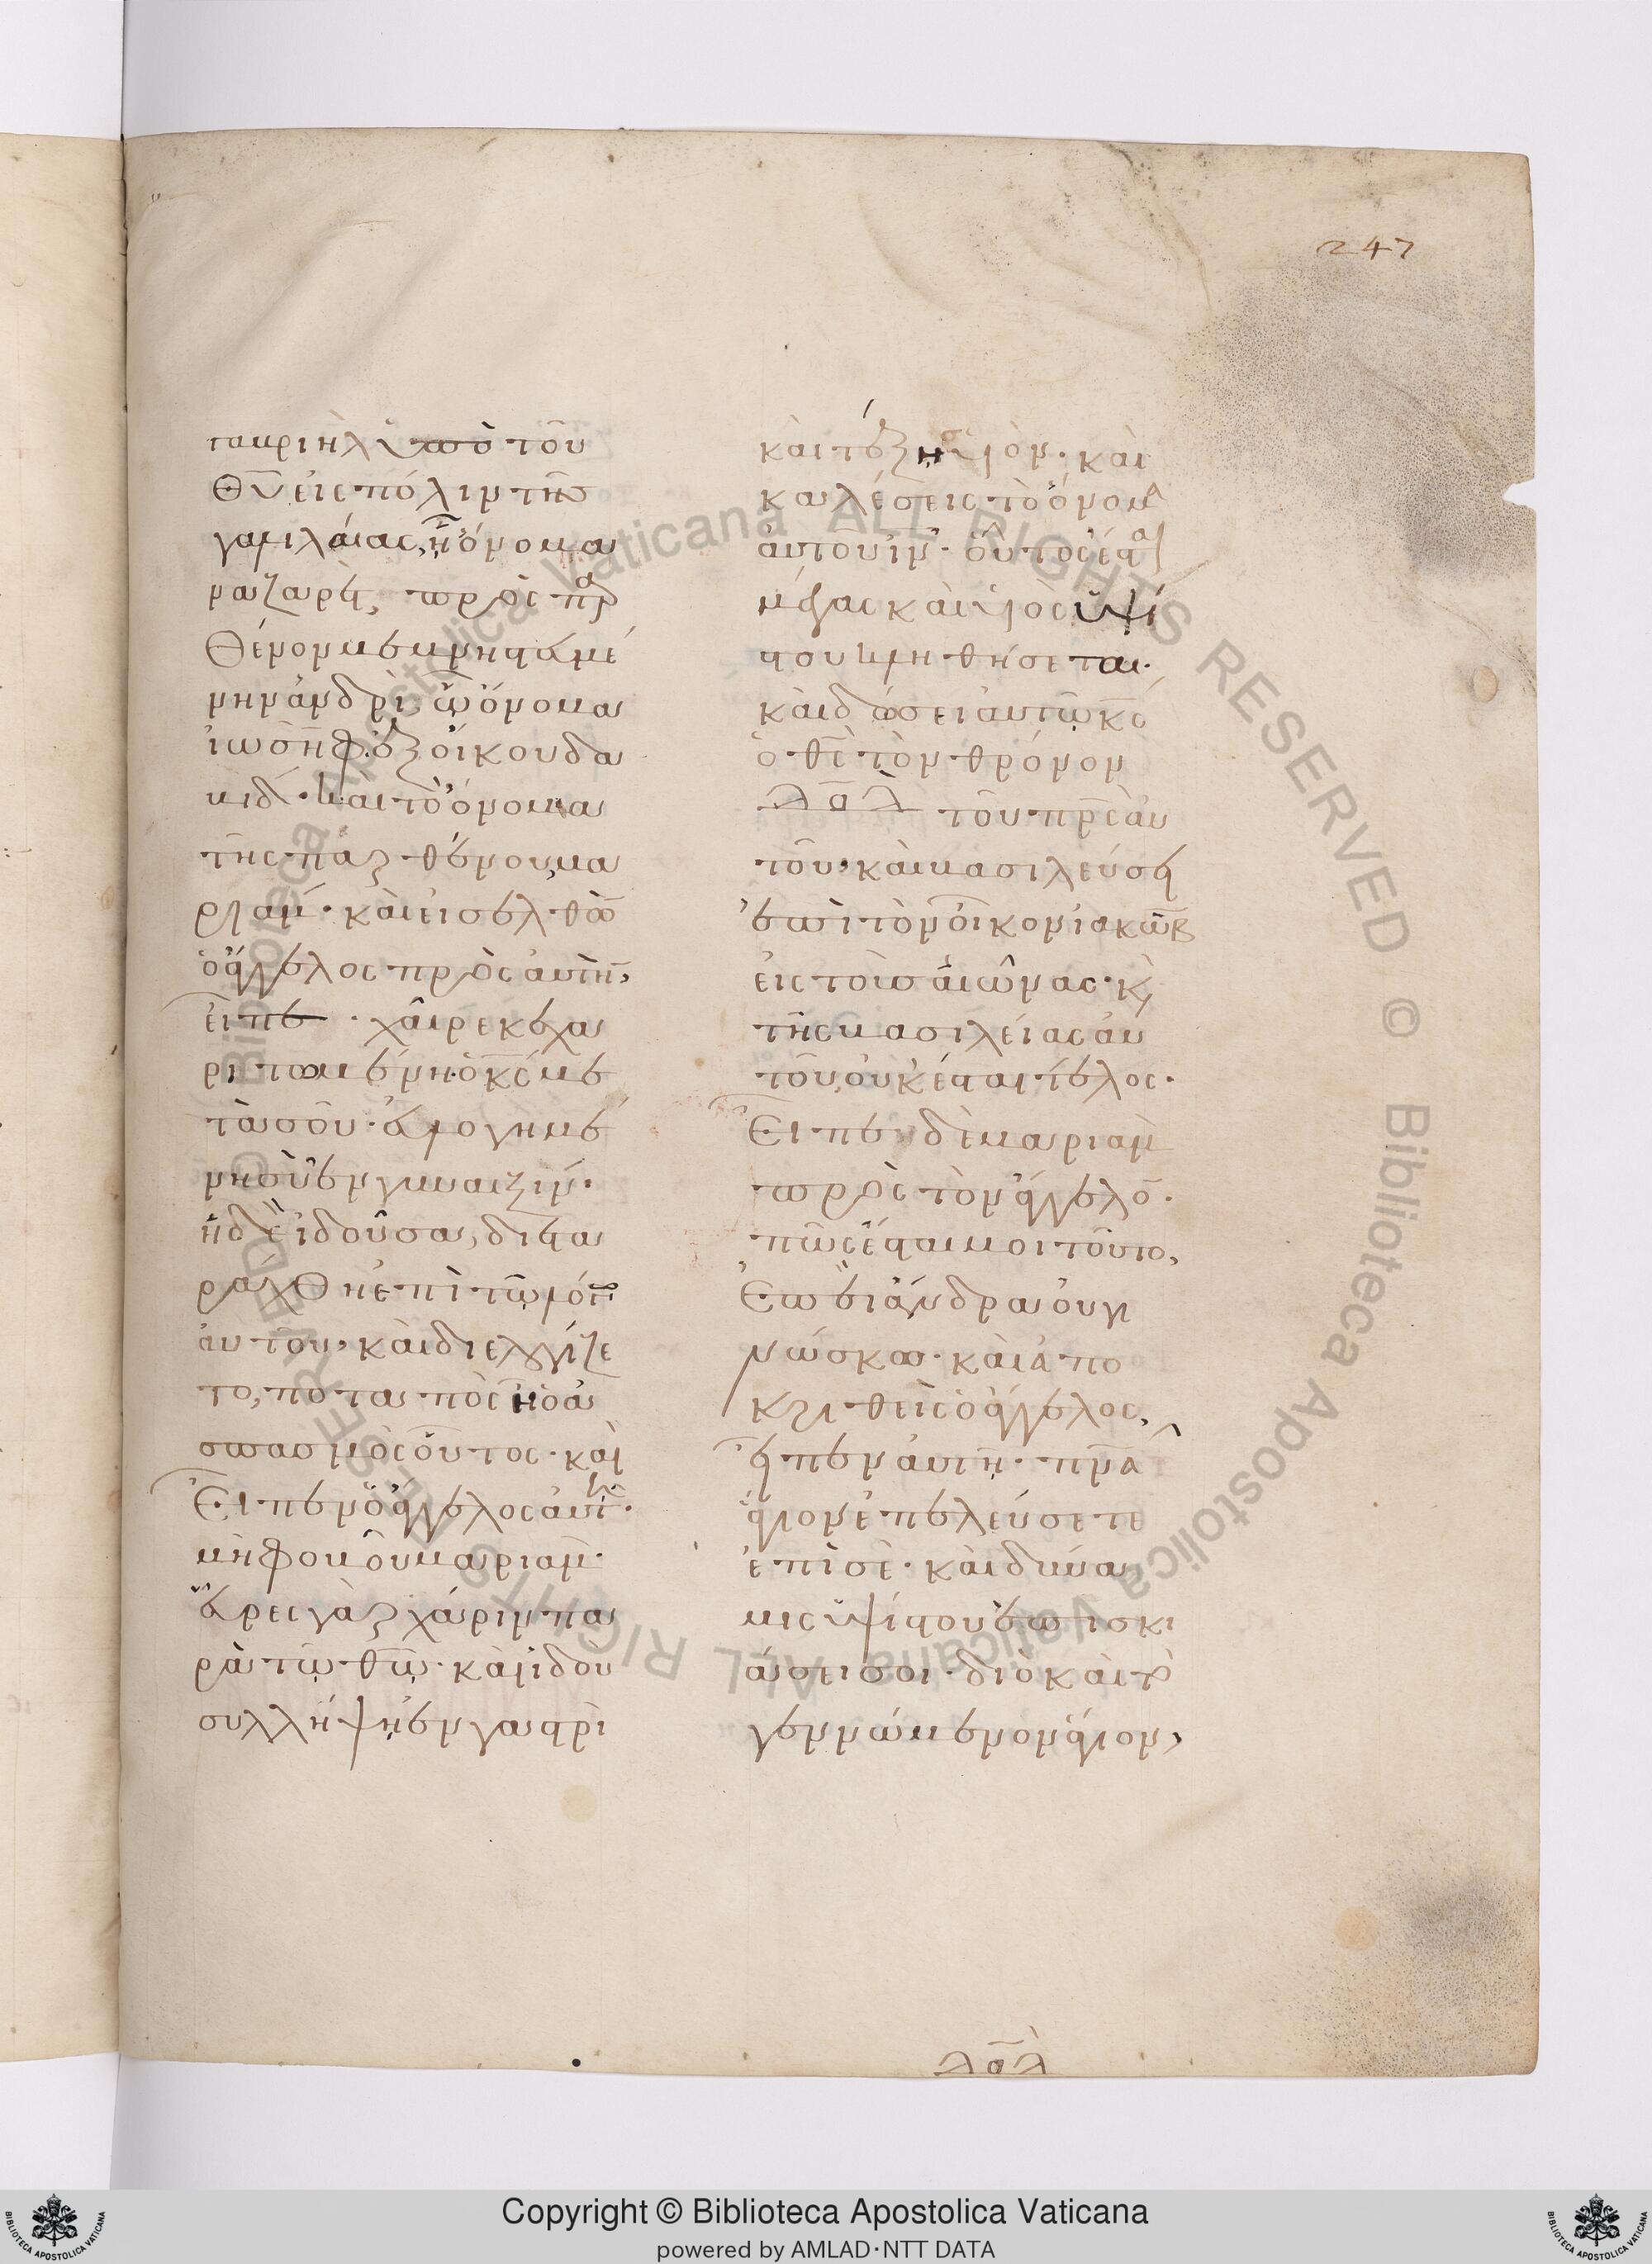 247
γαβριὴλ ὑπὸ τοῦ
Θῦ εἰς πόλιν τῆσ
γαλιλαίας, ἧ ὄνομα
ναζαρέτ, πρὸς πρ
Θένον μεμνηστευμέ
νην ἀνδρὶ, ὧ ὄνομα
ἰωσὴφ, ἐξ οἴκου δα
υίδ· καὶ τὸ ὄνομα
τῆς παρθένου, μα
ριάμ· καὶ εἰσελθὼν
ὁ ἄγγελος πρὸς αὐτὴν,
εἶπε· χαῖρε κεχα
ριτωμένη· ὁ κς με
τὰ σοῦ· εὐλογημέ
νη σὺ ἐν γυναιξίν·
ἡ δὲ ἰδοῦσα, διετα
ράχθη ἐπὶ τῶ λόγω
αὐτοῦ· καὶ διελογίζε
το, ποταπὸς εἴη ὁ ἀ
σπασμὸς οὗτος· καὶ
Εἶπεν ὁ ἄγγελος αὐτῆ·
μὴ φοβοῦ μαριάμ·
εὗρες γὰρ χάριν πα
ρὰ τῶ θῶ· καὶ ἰδοὺ
συλλήψη ἐν γαστρὶ
καὶ τέξη υἱὸν· καὶ
καλέσεις τὸ ὄνομα
αὐτοῦ ιν· οὗτος ἔσται
μέγας καὶ υἱὸς ὑψί
στου κληθήσεται·
καὶ δώσει αὐτῶ κς
ὁ θς τὸν θρόνον
δαδ τοῦ πρς αὐ
τοῦ· καὶ βασιλεύσει
ἐπὶ τὸν οἶκον ἰακὼβ
εἰς τοὺσ αἰῶνας· κ
τῆς βασιλείας αὐ
τοῦ, οὐκ ἔσται τέλος·
Εἶπε δὲ μαριὰμ
πρὸς τὸν ἄγγελον·
πῶς ἔσται μοι τοῦτο,
Ἐπεὶ ἄνδρα οὐ γι
νώσκω· καὶ ἀπο
κριθεὶς ὁ ἄγγελος,
εἶπεν αὐτῆ· πνα
ἅγιον ἐπελεύσετε
ἐπὶ σὲ· καὶ δύνα
μις ὑψίστου ἐπισκι
άσει σοι· διὸ καὶ τὸ
γεννώμενον ἅγιον,
δαδ
Copyright © Biblioteca Apostolica Vaticana
powered by AMLAD·NTT DATA